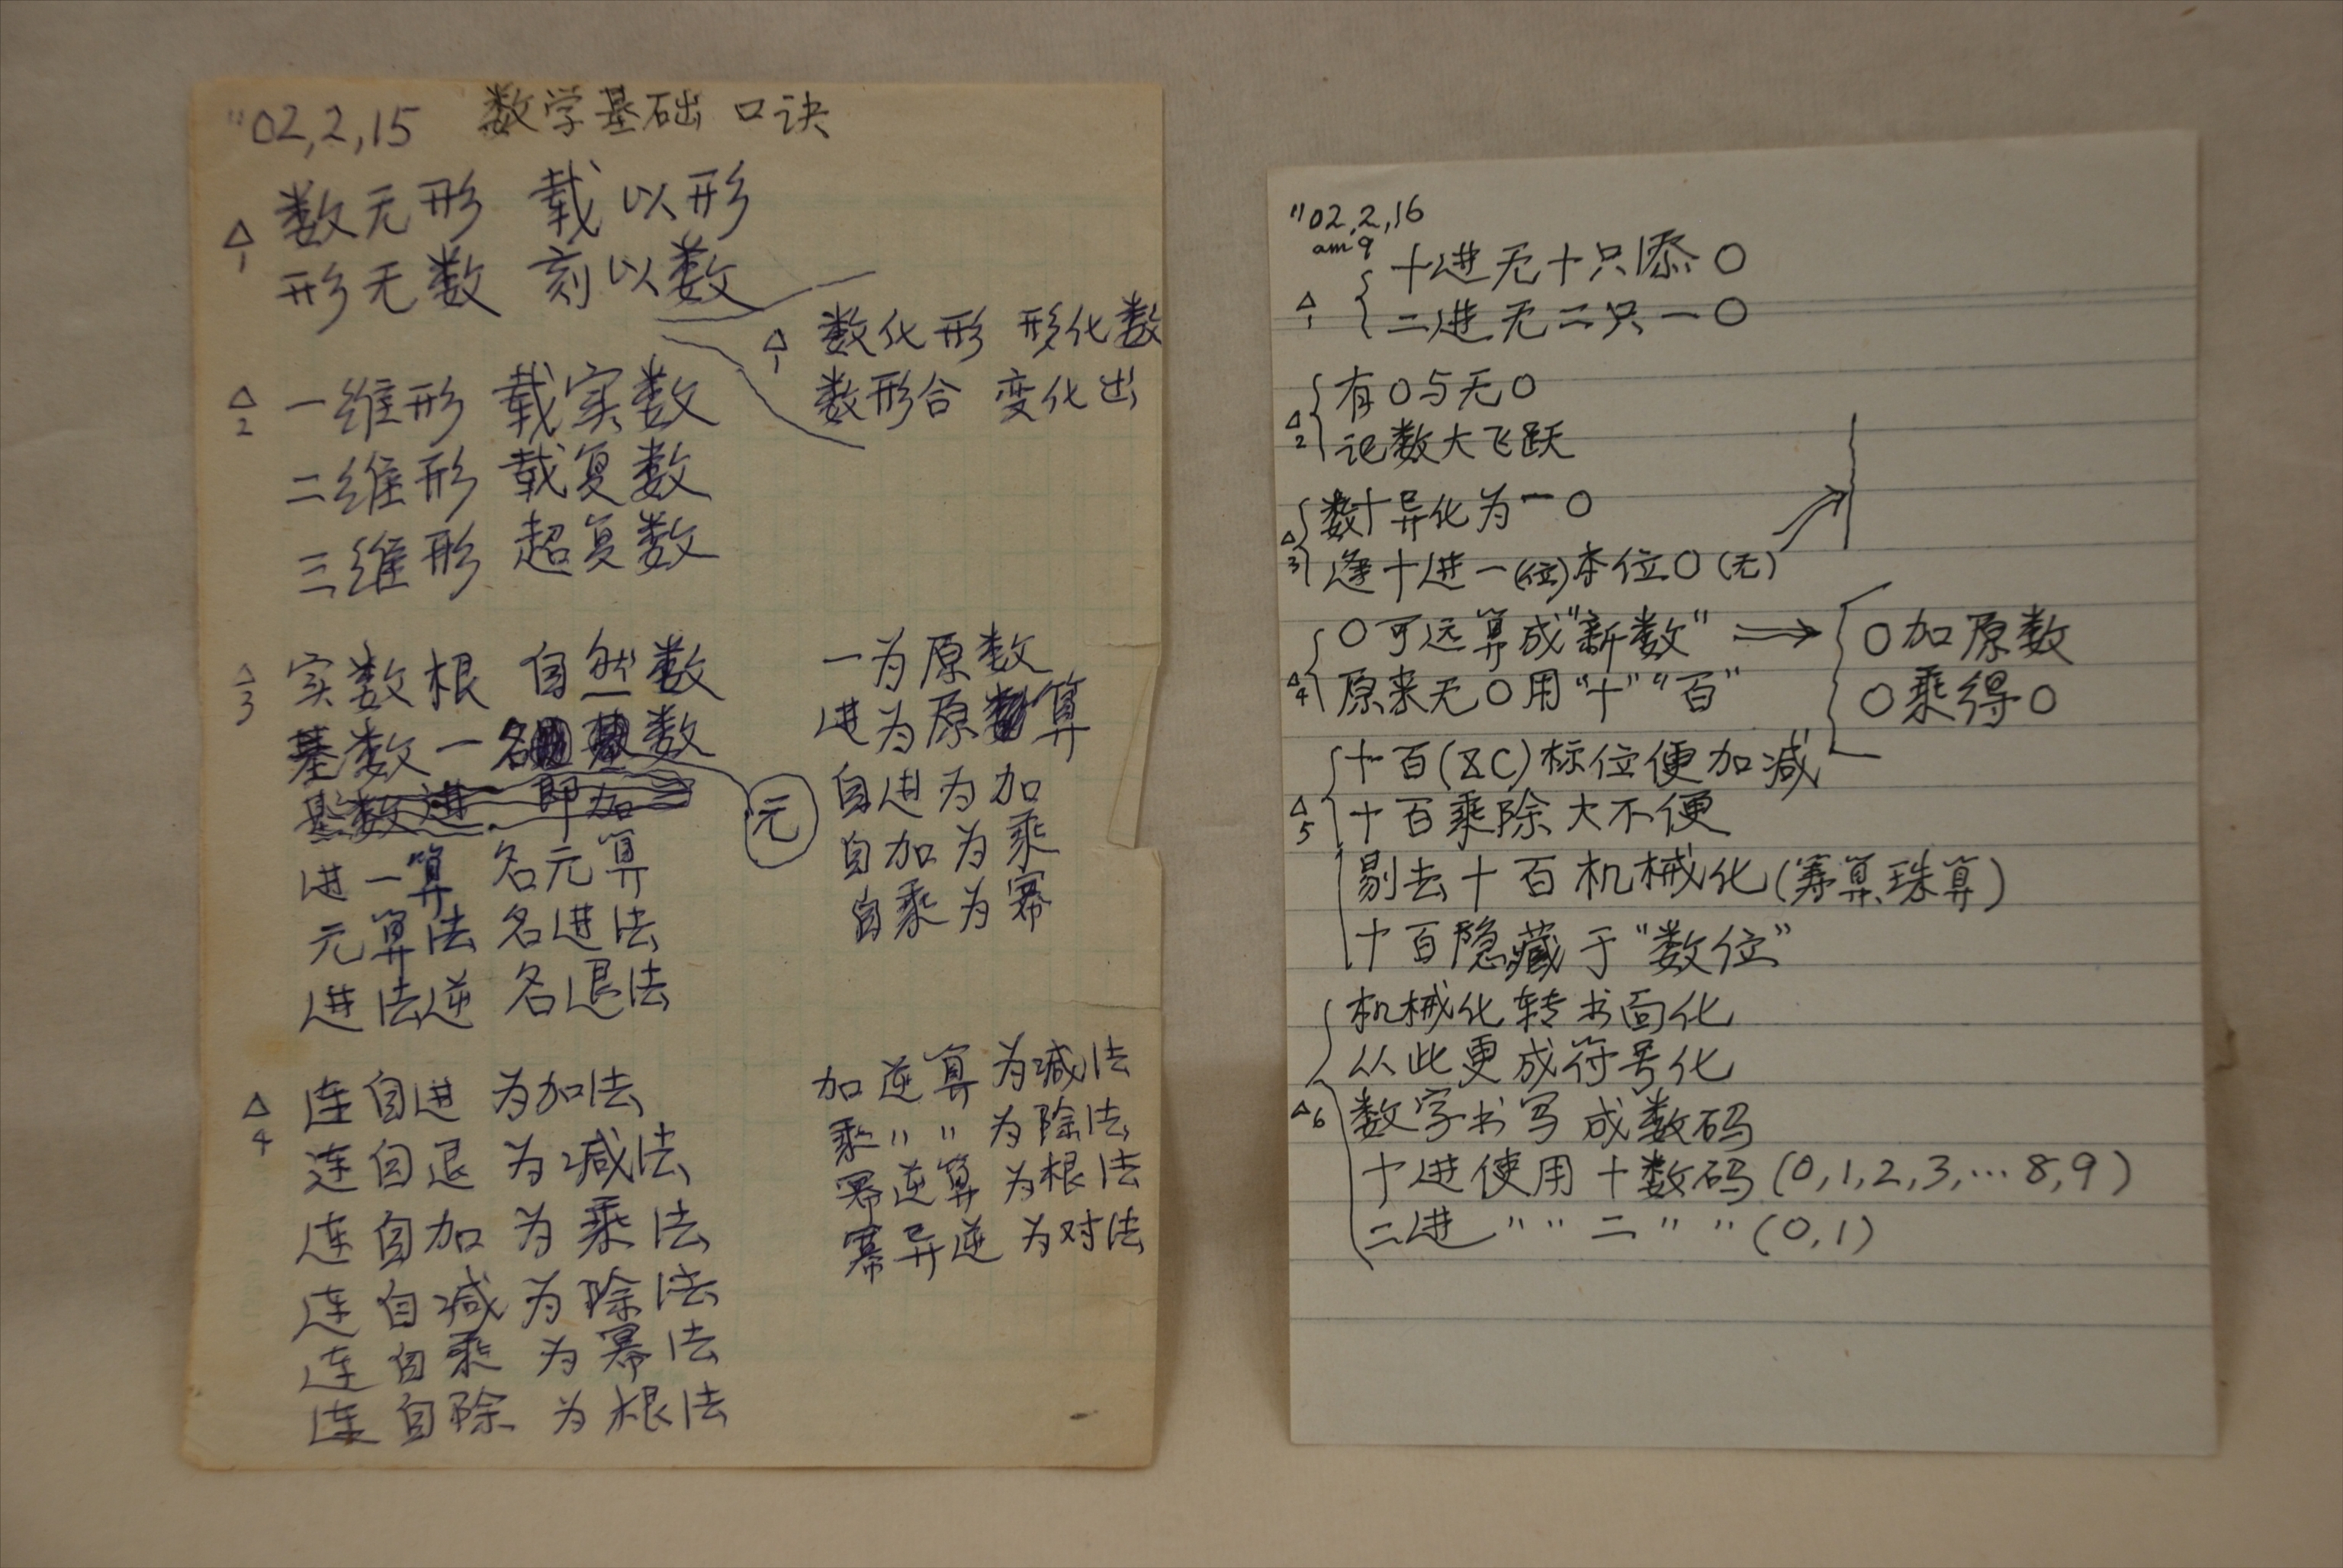 "02,2,15 数学基础 口诀
△1 数无形 载以形
形无数 刻以数
△1 数化形 形化数
数形合 变化出
△2 一维形 载实数
二维形 载复数
三维形 超复数
△3 实数根 自然数
基数一 名 数
元
基数进 即加
进一算 名元算
元算法 名进法
进法逆 名退法
一为原数
进为原算
自进为加
自加为乘
自乘为幂
△4 连自进 为加法
连自退 为减法
连自加 为乘法
连自减 为除法
连自乘 为幂法
连自除 为根法
加逆算为减法
乘〃〃为除法
幂逆算为根法
幂异逆为对法
"02,2,16
am 9
△1 十进无十只添0
二进无二只一0
△2 有0与无0
记数大飞跃
△3 数十异化为一0
逢十进一(位)本位0(无)
△4 0可运算成"新数"
原来无0用"十""百"
0加原数
0乘得0
△5 十百(XC)标位便加减
十百乘除大不便
剔去十百机械化(筹算、珠算)
十百隐藏于"数位"
△6 机械化转书面化
从此更成符号化
数字书写成数码
十进使用十数码(0,1,2,3,…8,9)
二进〃〃二〃〃(0,1)